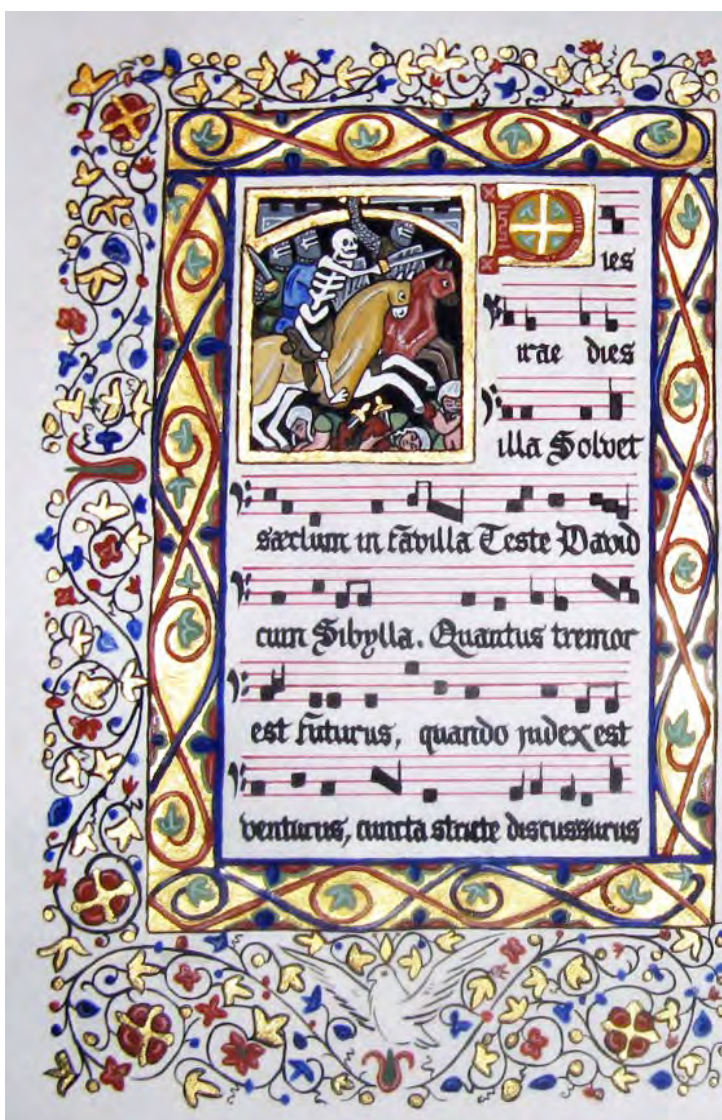 Dies
irae dies
illa Solvet
sæclum in favilla Teste David
cum Sibylla. Quantus tremor
est futurus, quando judex est
venturus, cuncta stricte discussurus